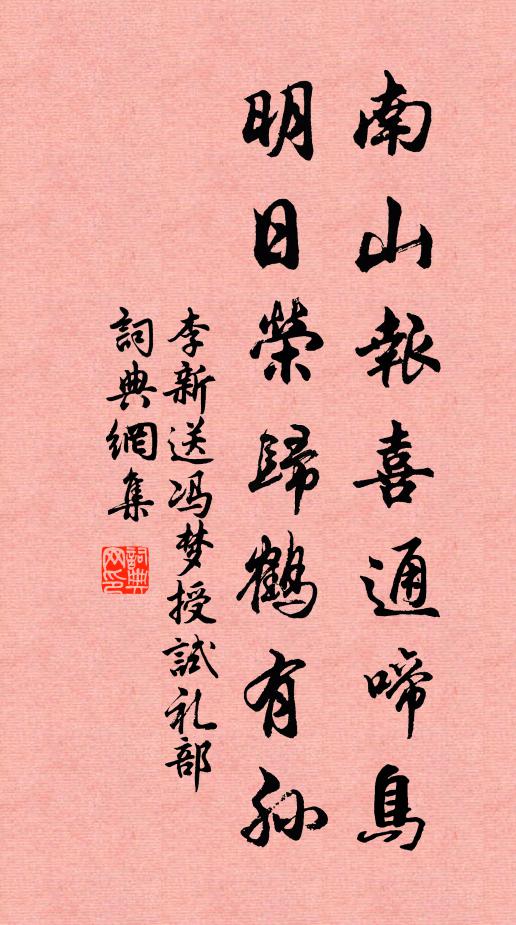 南山報喜通啼鳥
明日榮歸鶴有孙
李新送冯梦授試礼部
詞典網集
詞典网印